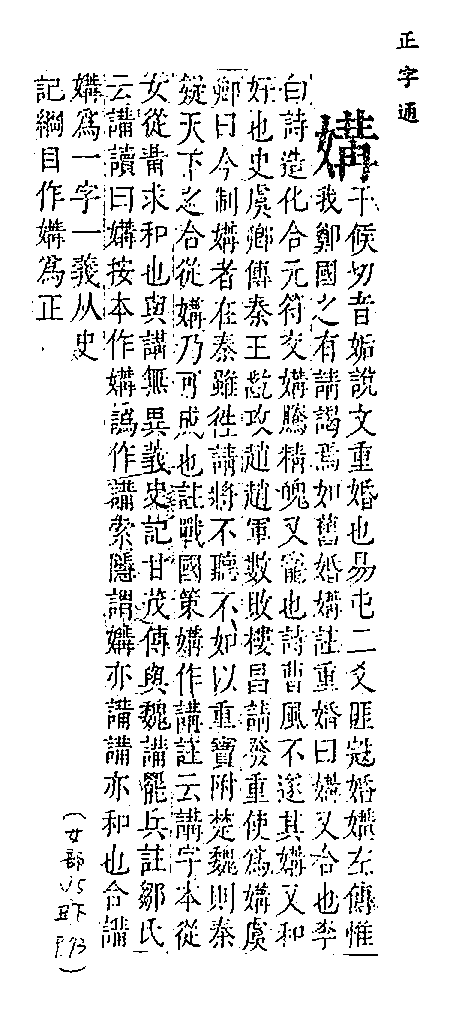 正字通
媾干候切音姤說文重婚也易屯二爻匪寇婚媾左傳惟
我鄭國之有請謁焉如舊婚媾註重婚曰媾又合也李
白詩造化合元符交媾騰精魄又寵也詩曹風不遂其媾又和
好也史虞卿傳秦王齕攻趙趙軍數敗樓昌請發重使爲媾虞
卿曰今制媾者在秦雖往請將不聽不如以重寶附楚魏則秦
疑天下之合從媾乃可成也註戰國策媾作講註云講字本從
女從冓求和也與講無異義史記甘茂傳與魏講罷兵註鄒氏
云講讀曰媾按本作媾譌作講索隱謂媾亦講講亦和也合講
媾爲一字一義从史
記綱目作媾爲正
(女部 丑下 P.93)